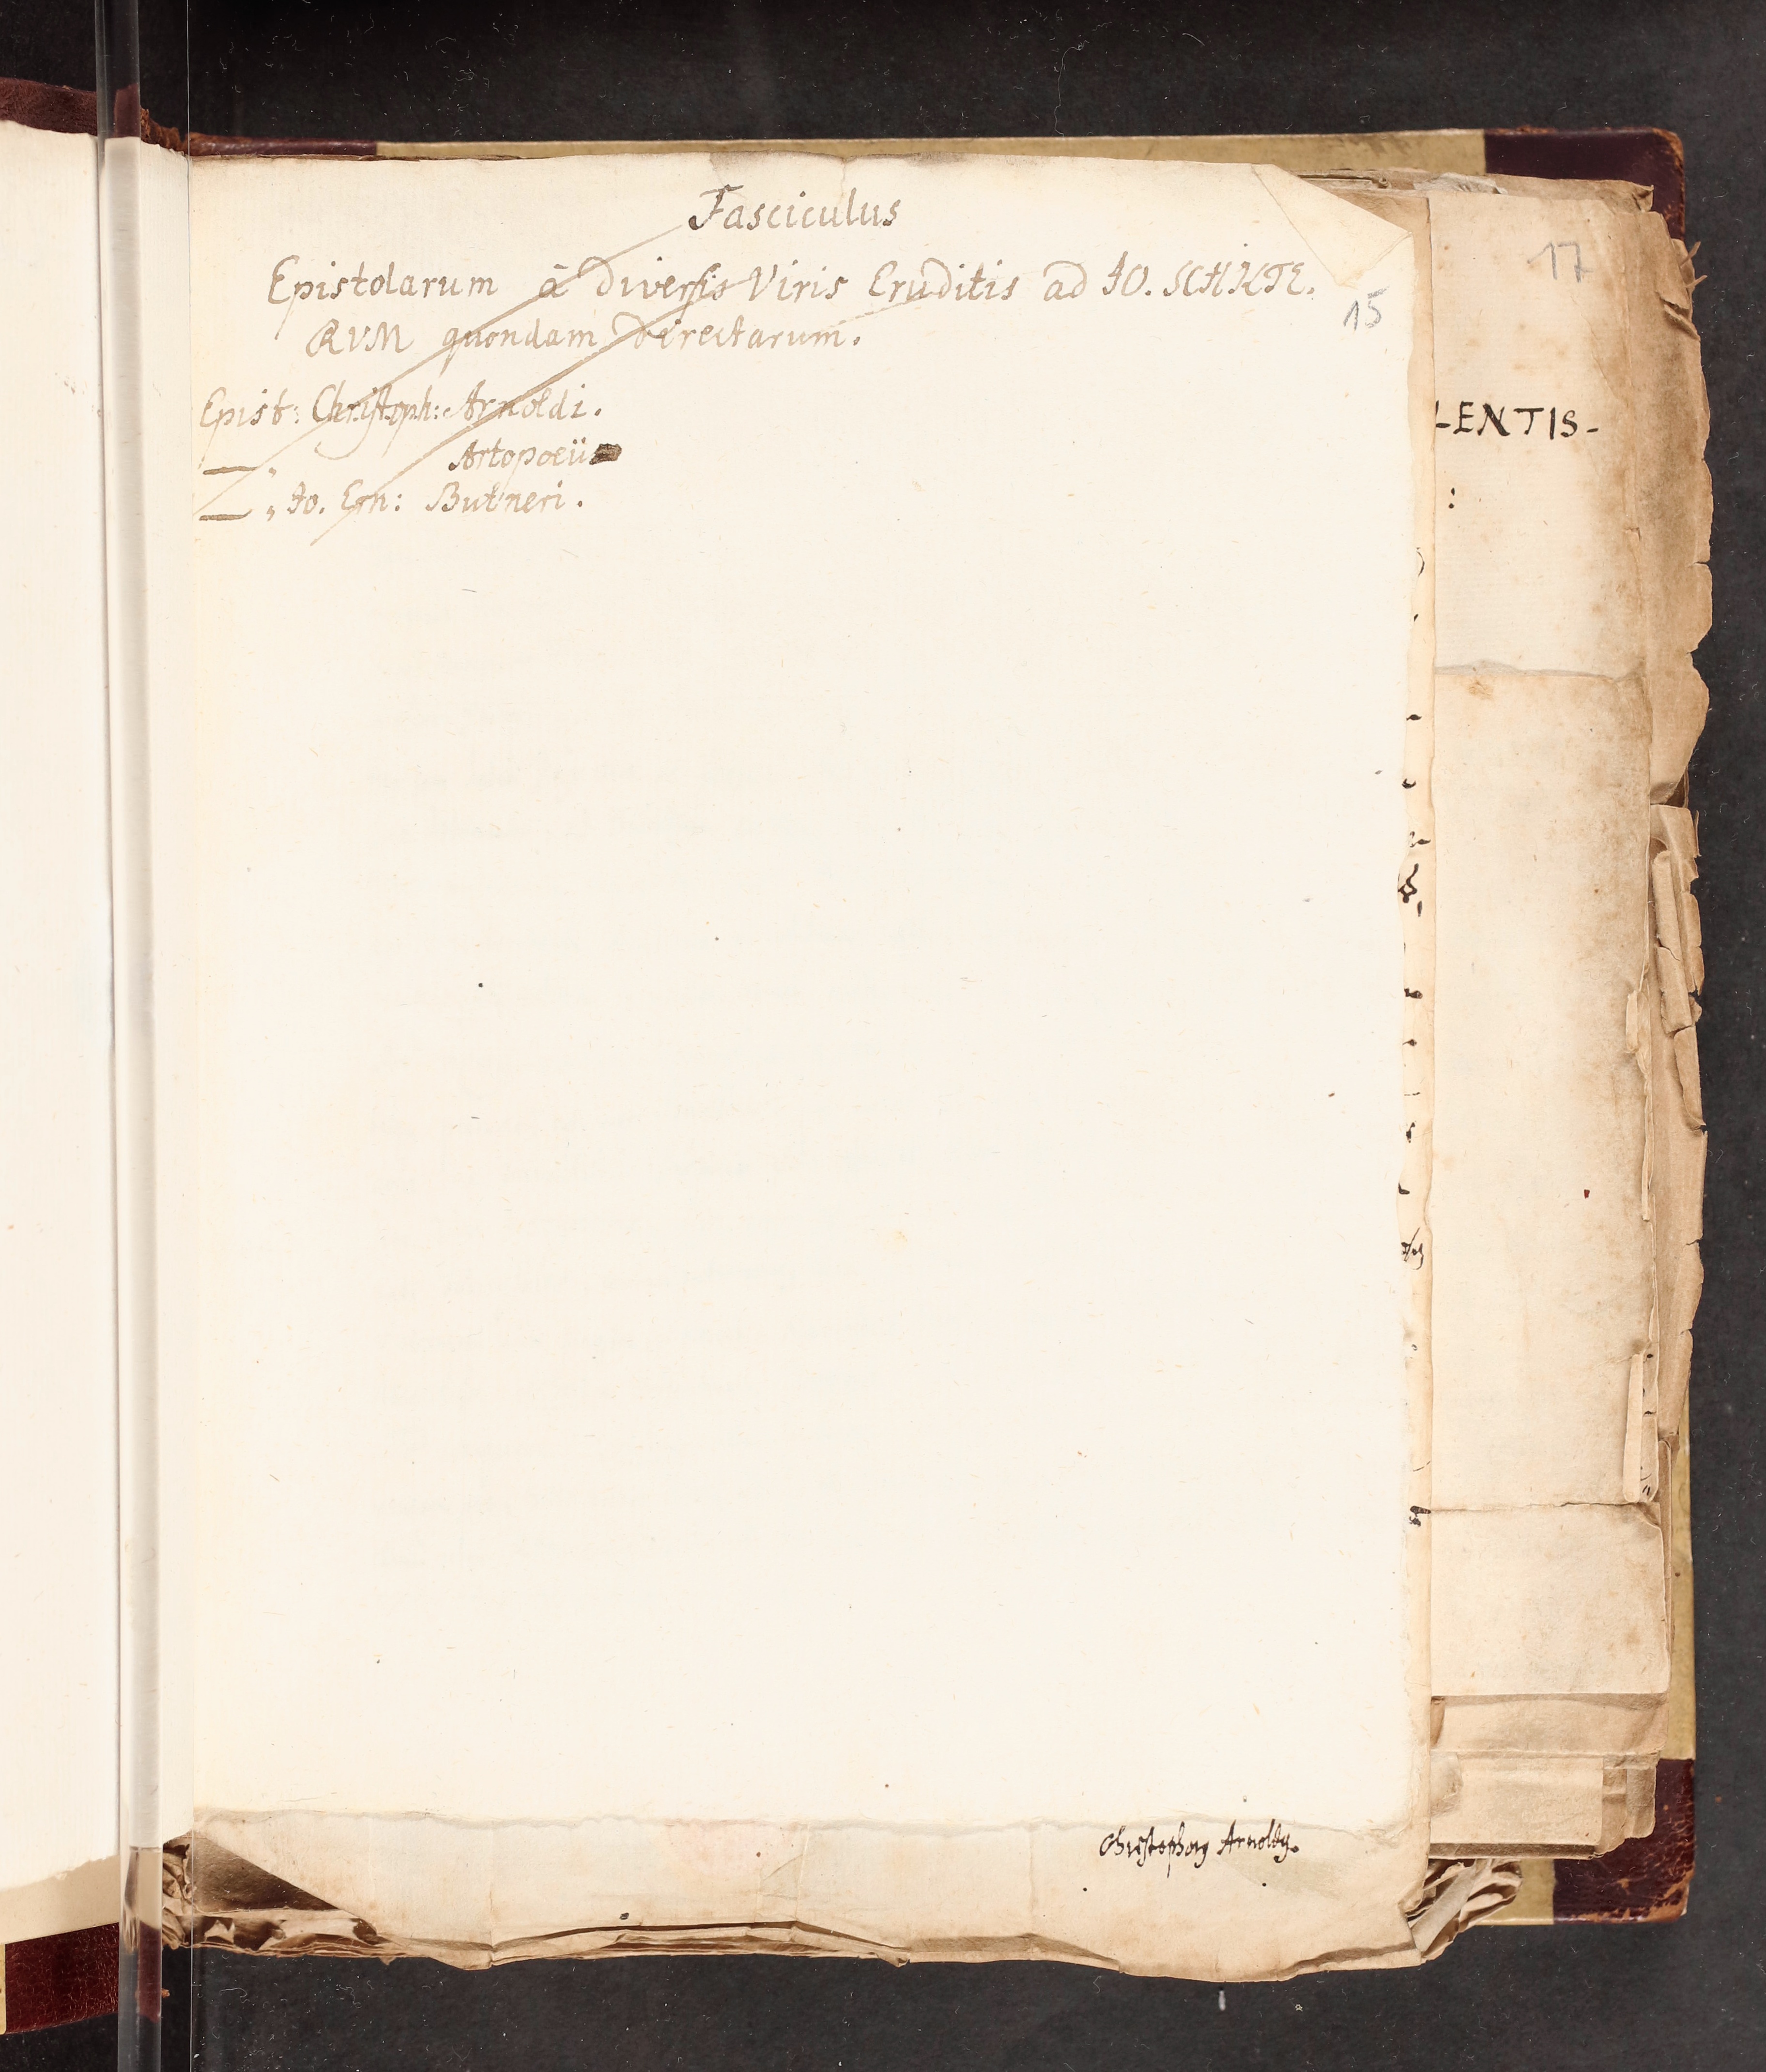 Fasciculus
Epistolarum â Diversis Viris Eruditis ad IO. SCHEFFE.
RVM quondam Directarum.
Epist: Christoph: Arnoldi.
— „ Artopoeii
— „ Io. Ern: Butneri.
15
17
LENTIS-
:
Christophorus Arnoldus.